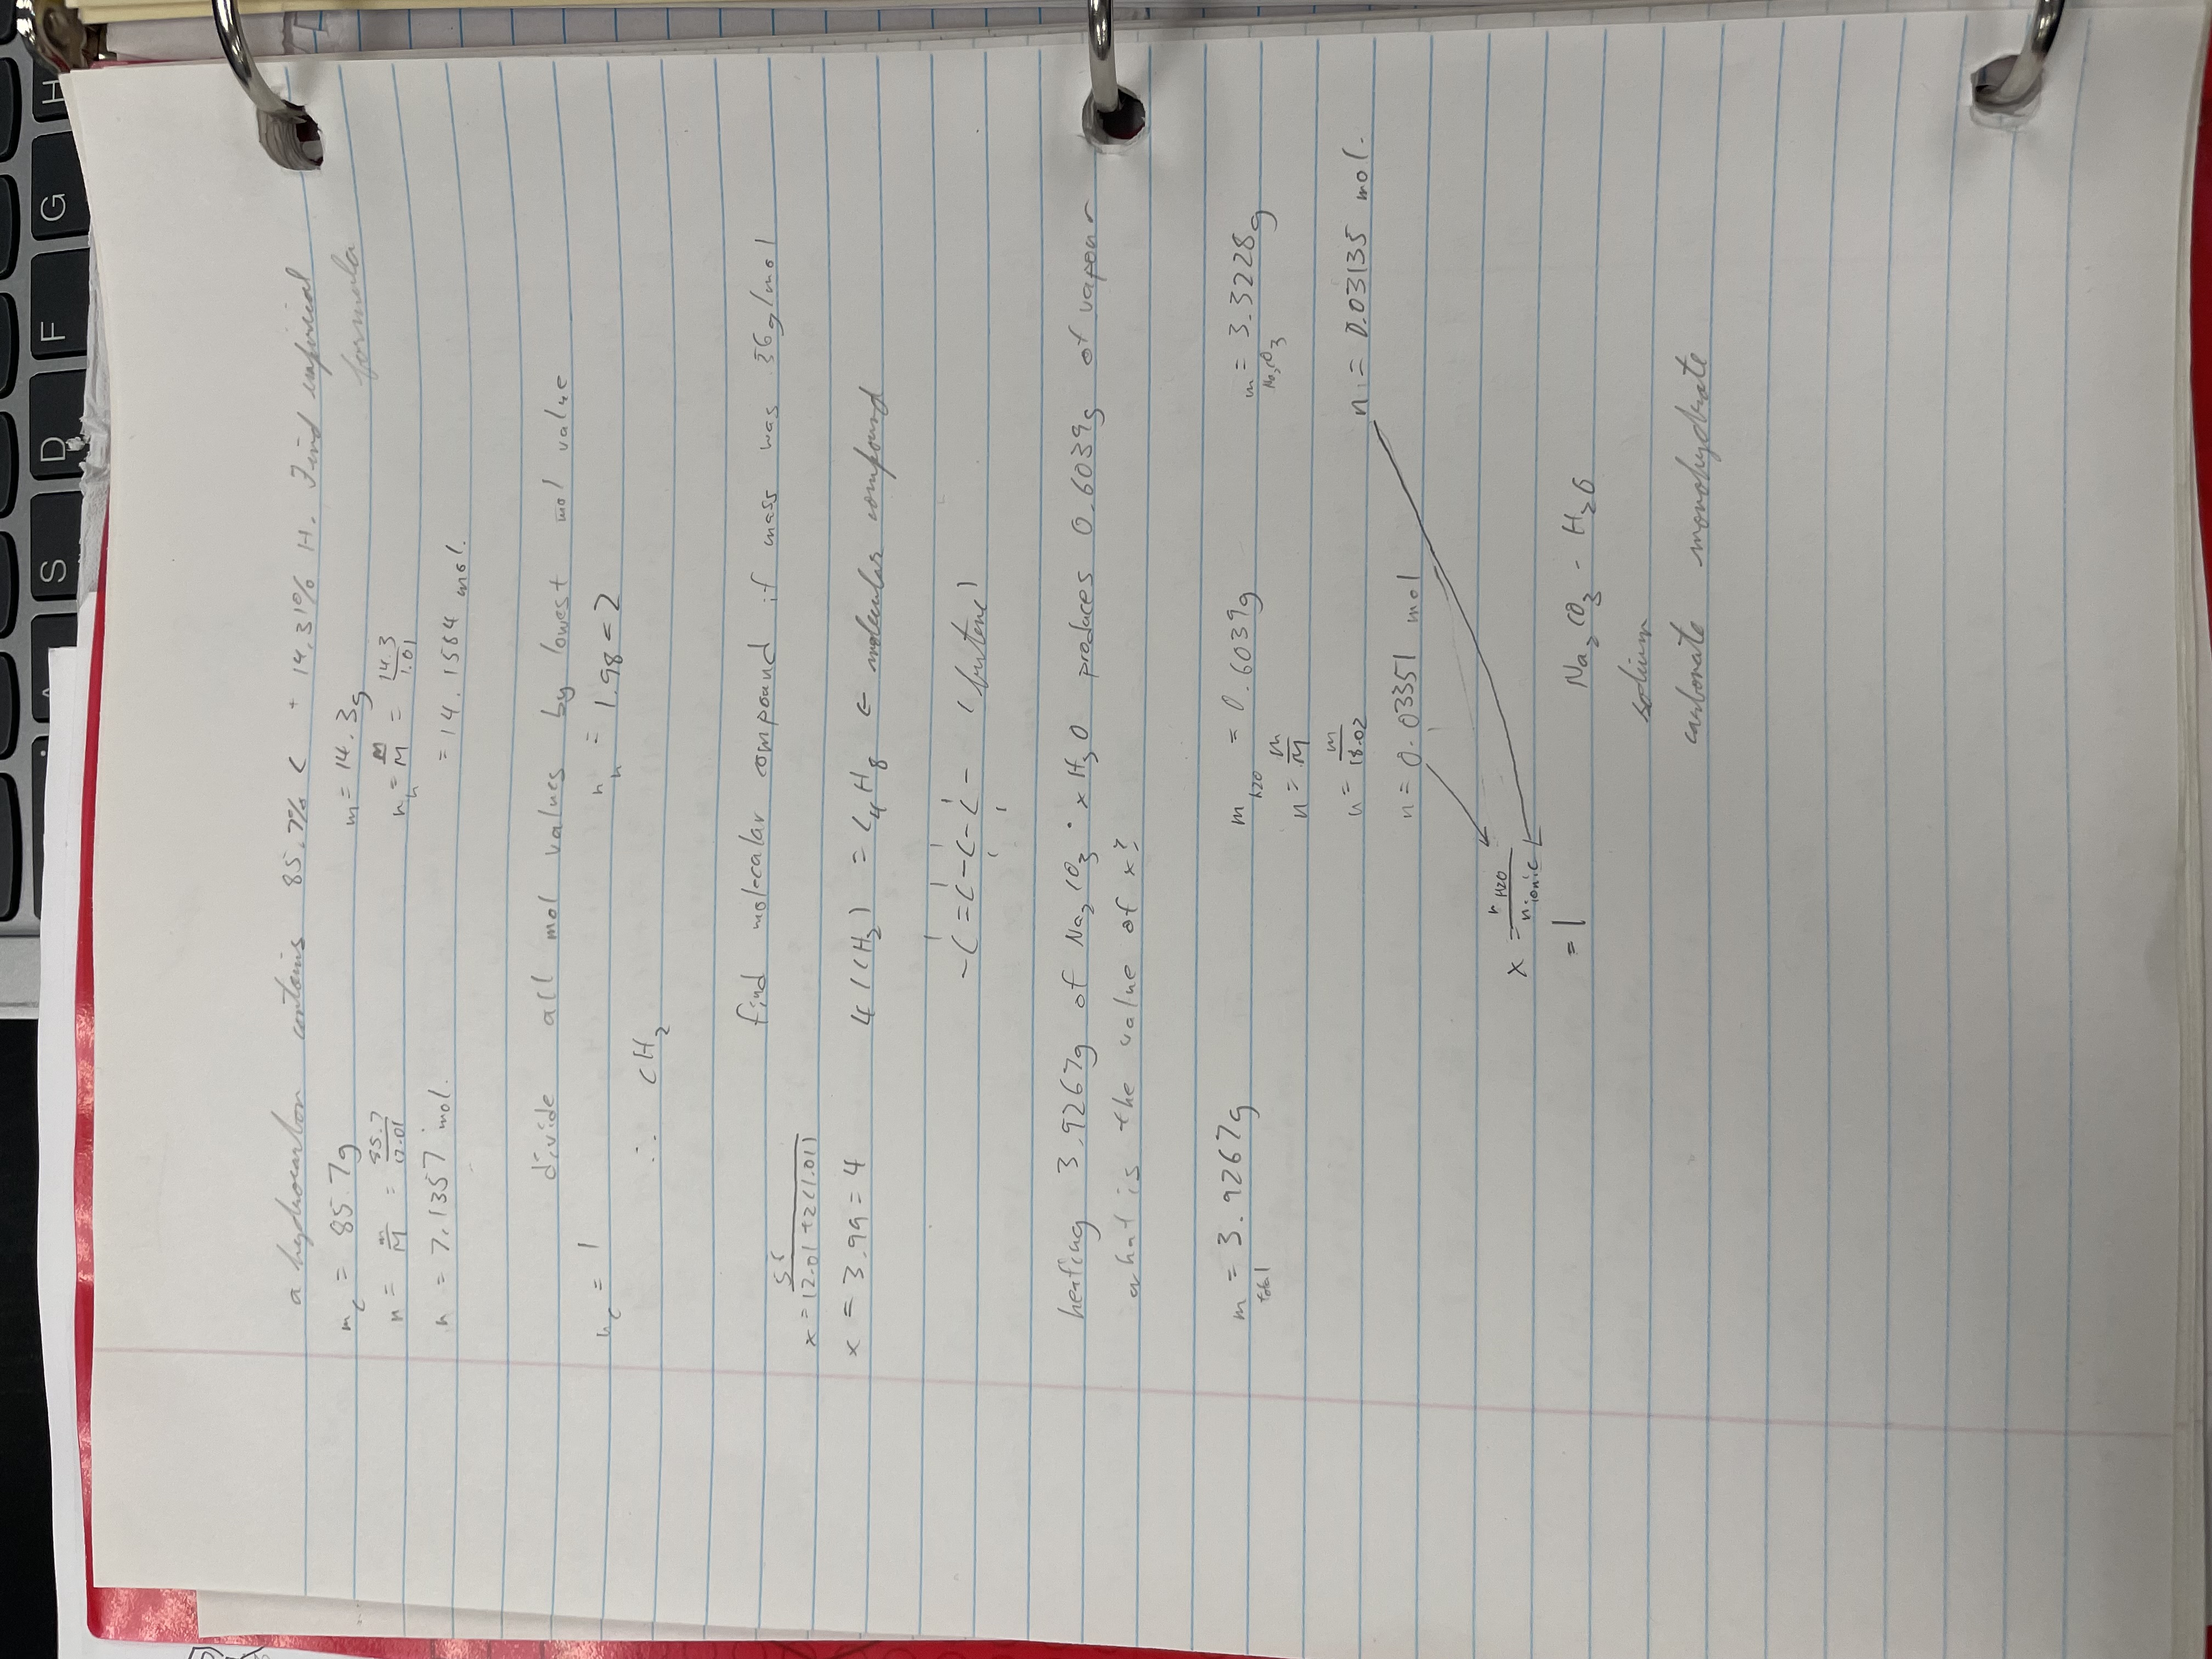 S D F G H
a hydrocarbon contains 85.7% C + 14.31% H. Find empirical
formula
m_c = 85.7g m = 14.3g
n = m/M = 85.7/12.01 n_h = m/M = 14.3/1.01
n = 7.1357 mol. = 14.1584 mol.
divide all mol values by lowest mol value
n_c = 1 n_h = 1.98 = 2
∴ CH₂
find molecalar compound if mass was 56g/mol
x = 56/12.01+2(1.01)
x = 3.99 = 4 4(CH₂) = C₄H₈ ← molecular compound
-C=C-C-C- (butene)
heating 3.9267g of Na₂CO₃ · xH₂O produces 0.6039g of vapour
what is the value of x?
m_total = 3.9267g m_h2o = 0.6039g m_Na₂CO₃ = 3.3228g
n = m/M
n = m/18.02 n = 0.03135 mol.
n = 0.03351 mol
x = n_H2O/n_ionic
= 1 Na₂CO₃ - H₂O
sodium
carbonate monohydrate